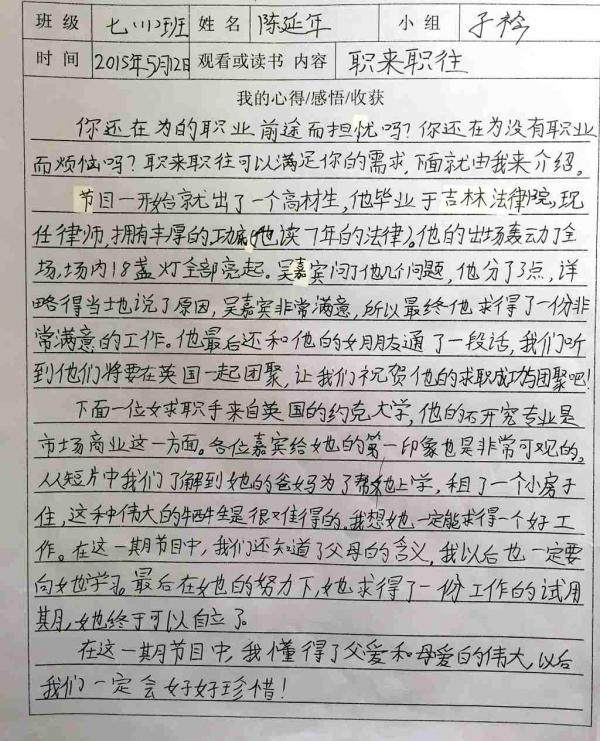 班级 七(1)班 姓名 陈延年 小组 子衿
时间 2015年5月12日 观看或读书 内容 职来职往
我的心得/感悟/收获
你还在为的职业前途而担忧吗?你还在为没有职业
而烦恼吗?职来职往可以满足你的需求,下面就由我来介绍。
节目一开始就出了一个高材生,他毕业于吉林法律院,现
任律师,拥有丰厚的功底(他读7年的法律)。他的出场轰动了全
场,场内18盏灯全部亮起。吴嘉宾问了他几个问题,他分了3点,详
略得当地说了原因,吴嘉宾非常满意,所以最终他求得了一份非
常满意的工作。他最后还和他的女朋友通了一段话,我们听
到他们将要在英国一起团聚,让我们祝贺他的求职成功与团聚吧!
下面一位女求职手来自英国的约克大学,他的研究专业是
市场商业这一方面。各位嘉宾给她的第一印象也是非常可观的。
从短片中我们了解到她的爸妈为了帮她上学,租了一个小房子
住,这种伟大的牺牲是很难得的。我想她一定能求得一个好工
作。在这一期节目中,我们还知道了父母的含义,我以后也一定要
向她学习。最后在她的努力下,她求得了一份工作的试用
期,她终于可以自立了。
在这一期节目中,我懂得了父爱和母爱的伟大,以后
我们一定会好好珍惜!